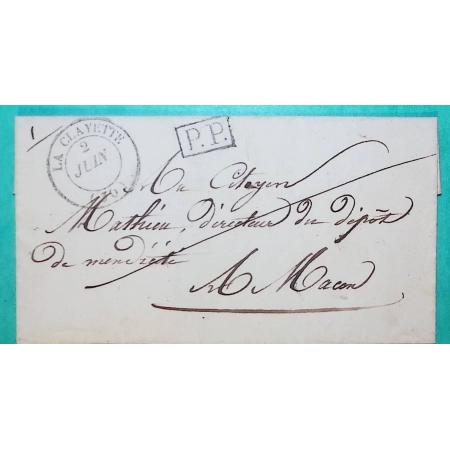 LA CLAYETTE
2
JUIN
(70)
P.P.
Au Citoyen
Mathieu, directeur du dépôt
de mendiété
A Macon